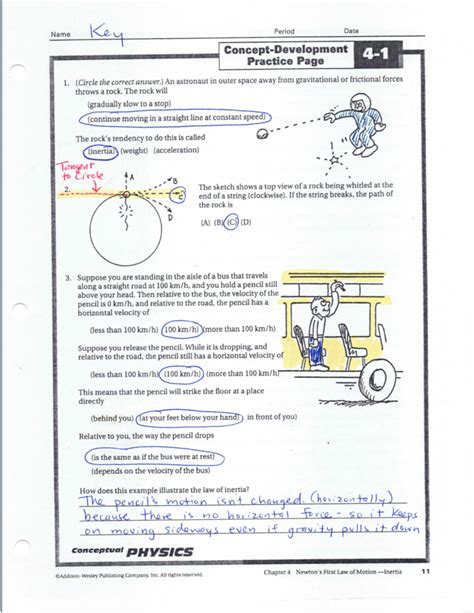 Name Key Period Date
Concept-Development
Practice Page
4-1
1. (Circle the correct answer.) An astronaut in outer space away from gravitational or frictional forces
throws a rock. The rock will
(gradually slow to a stop)
(continue moving in a straight line at constant speed)
The rock's tendency to do this is called
(inertia) (weight) (acceleration)
Tangent
to Circle
A
B
C
D
2.
The sketch shows a top view of a rock being whirled at the
end of a string (clockwise). If the string breaks, the path of
the rock is
(A) (B) (C) (D)
3. Suppose you are standing in the aisle of a bus that travels
along a straight road at 100 km/h, and you hold a pencil still
above your head. Then relative to the bus, the velocity of the
pencil is 0 km/h, and relative to the road, the pencil has a
horizontal velocity of
(less than 100 km/h) (100 km/h) (more than 100 km/h)
Suppose you release the pencil. While it is dropping, and
relative to the road, the pencil still has a horizontal velocity of
(less than 100 km/h) (100 km/h) (more than 100 km/h)
This means that the pencil will strike the floor at a place
directly
(behind you) (at your feet below your hand) in front of you)
Relative to you, the way the pencil drops
(is the same as if the bus were at rest)
(depends on the velocity of the bus)
How does this example illustrate the law of inertia?
The pencil's motion isn't changed (horizontally)
because there is no horizontal force - so it keeps
on moving sideways even if gravity pulls it down
Conceptual PHYSICS
©Addison-Wesley Publishing Company, Inc. All rights reserved.
Chapter 4 Newton's First Law of Motion—Inertia 11